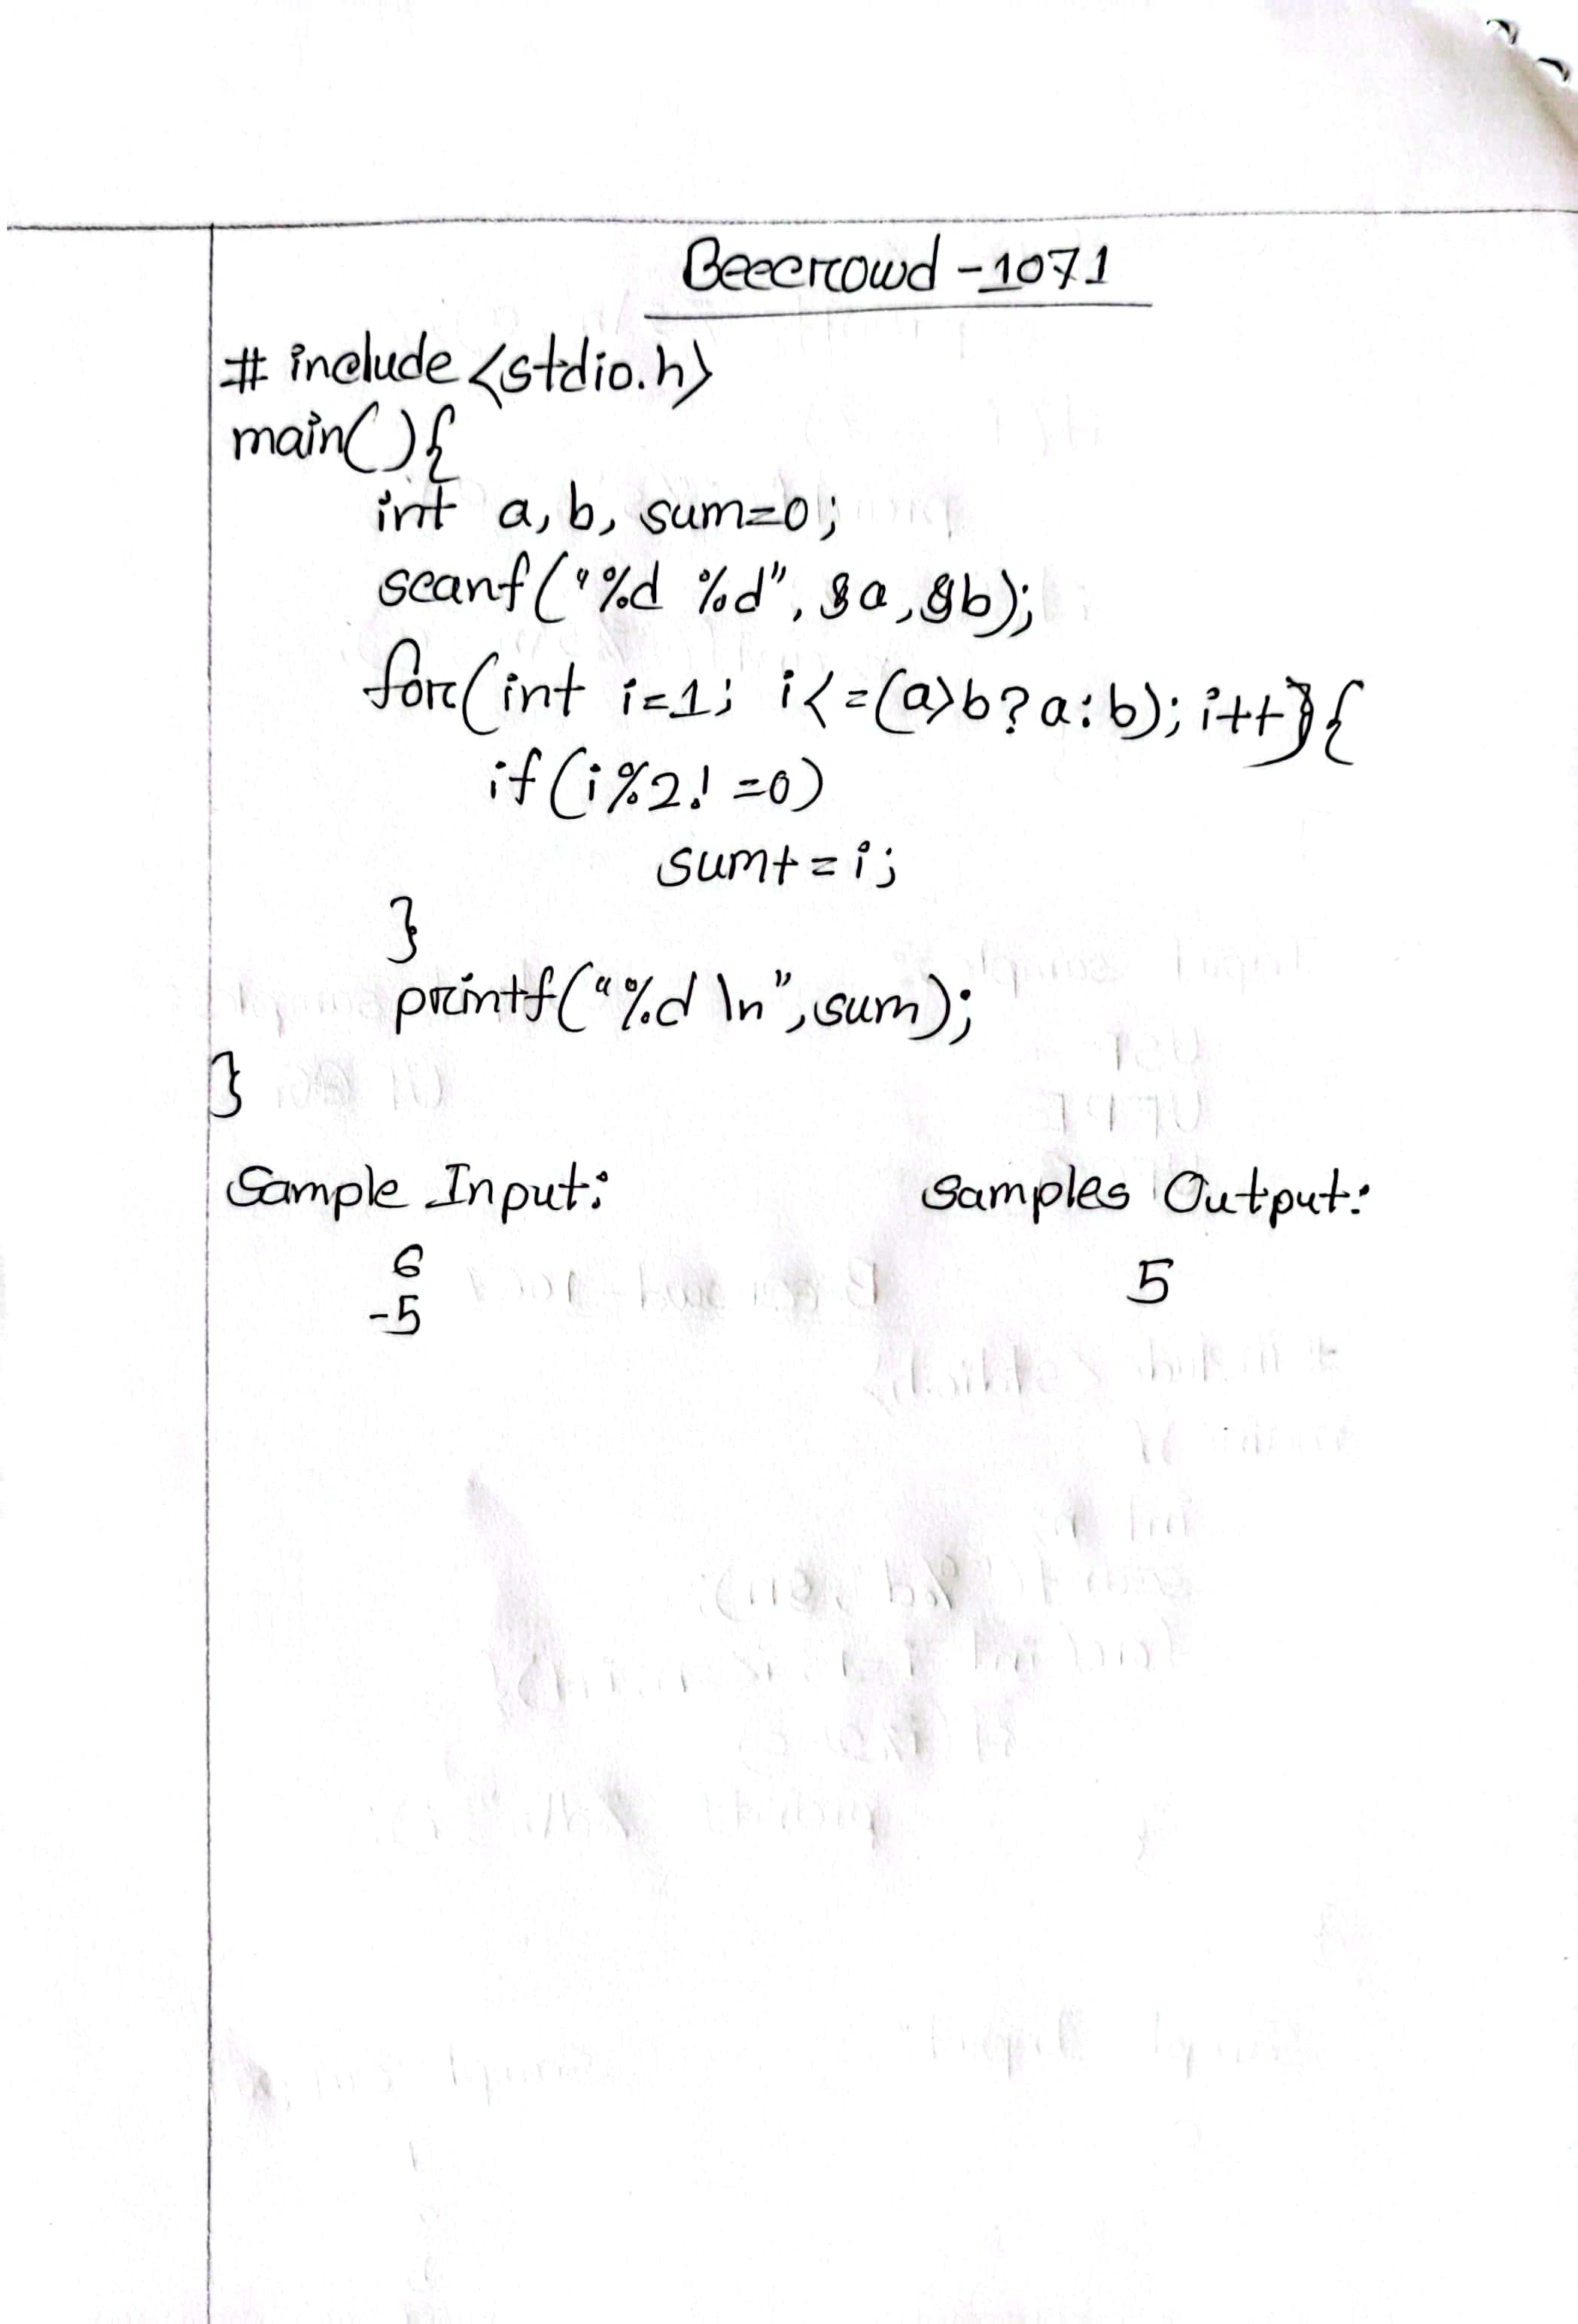 Beecrowd - 1071
# include <stdio.h>
main(){
int a, b, sum=0;
scanf("%d %d", &a, &b);
for(int i=1; i<=(a>b?a:b); i++){
if(i%2!=0)
sum+=i;
}
printf("%d \n", sum);
}
Sample Input: Samples Output:
6 5
-5